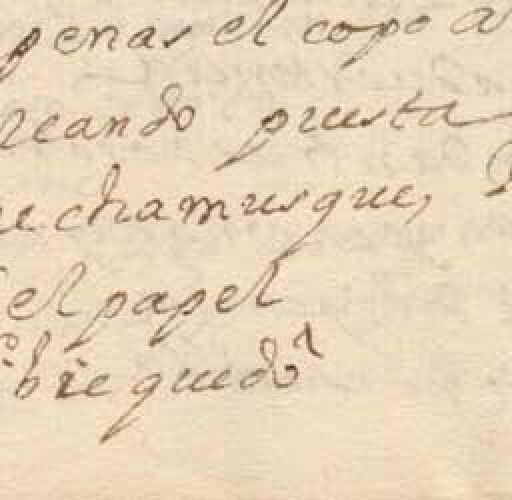 penas el copo a
reando puesta
ue chamusque,
el papel
brie quedò